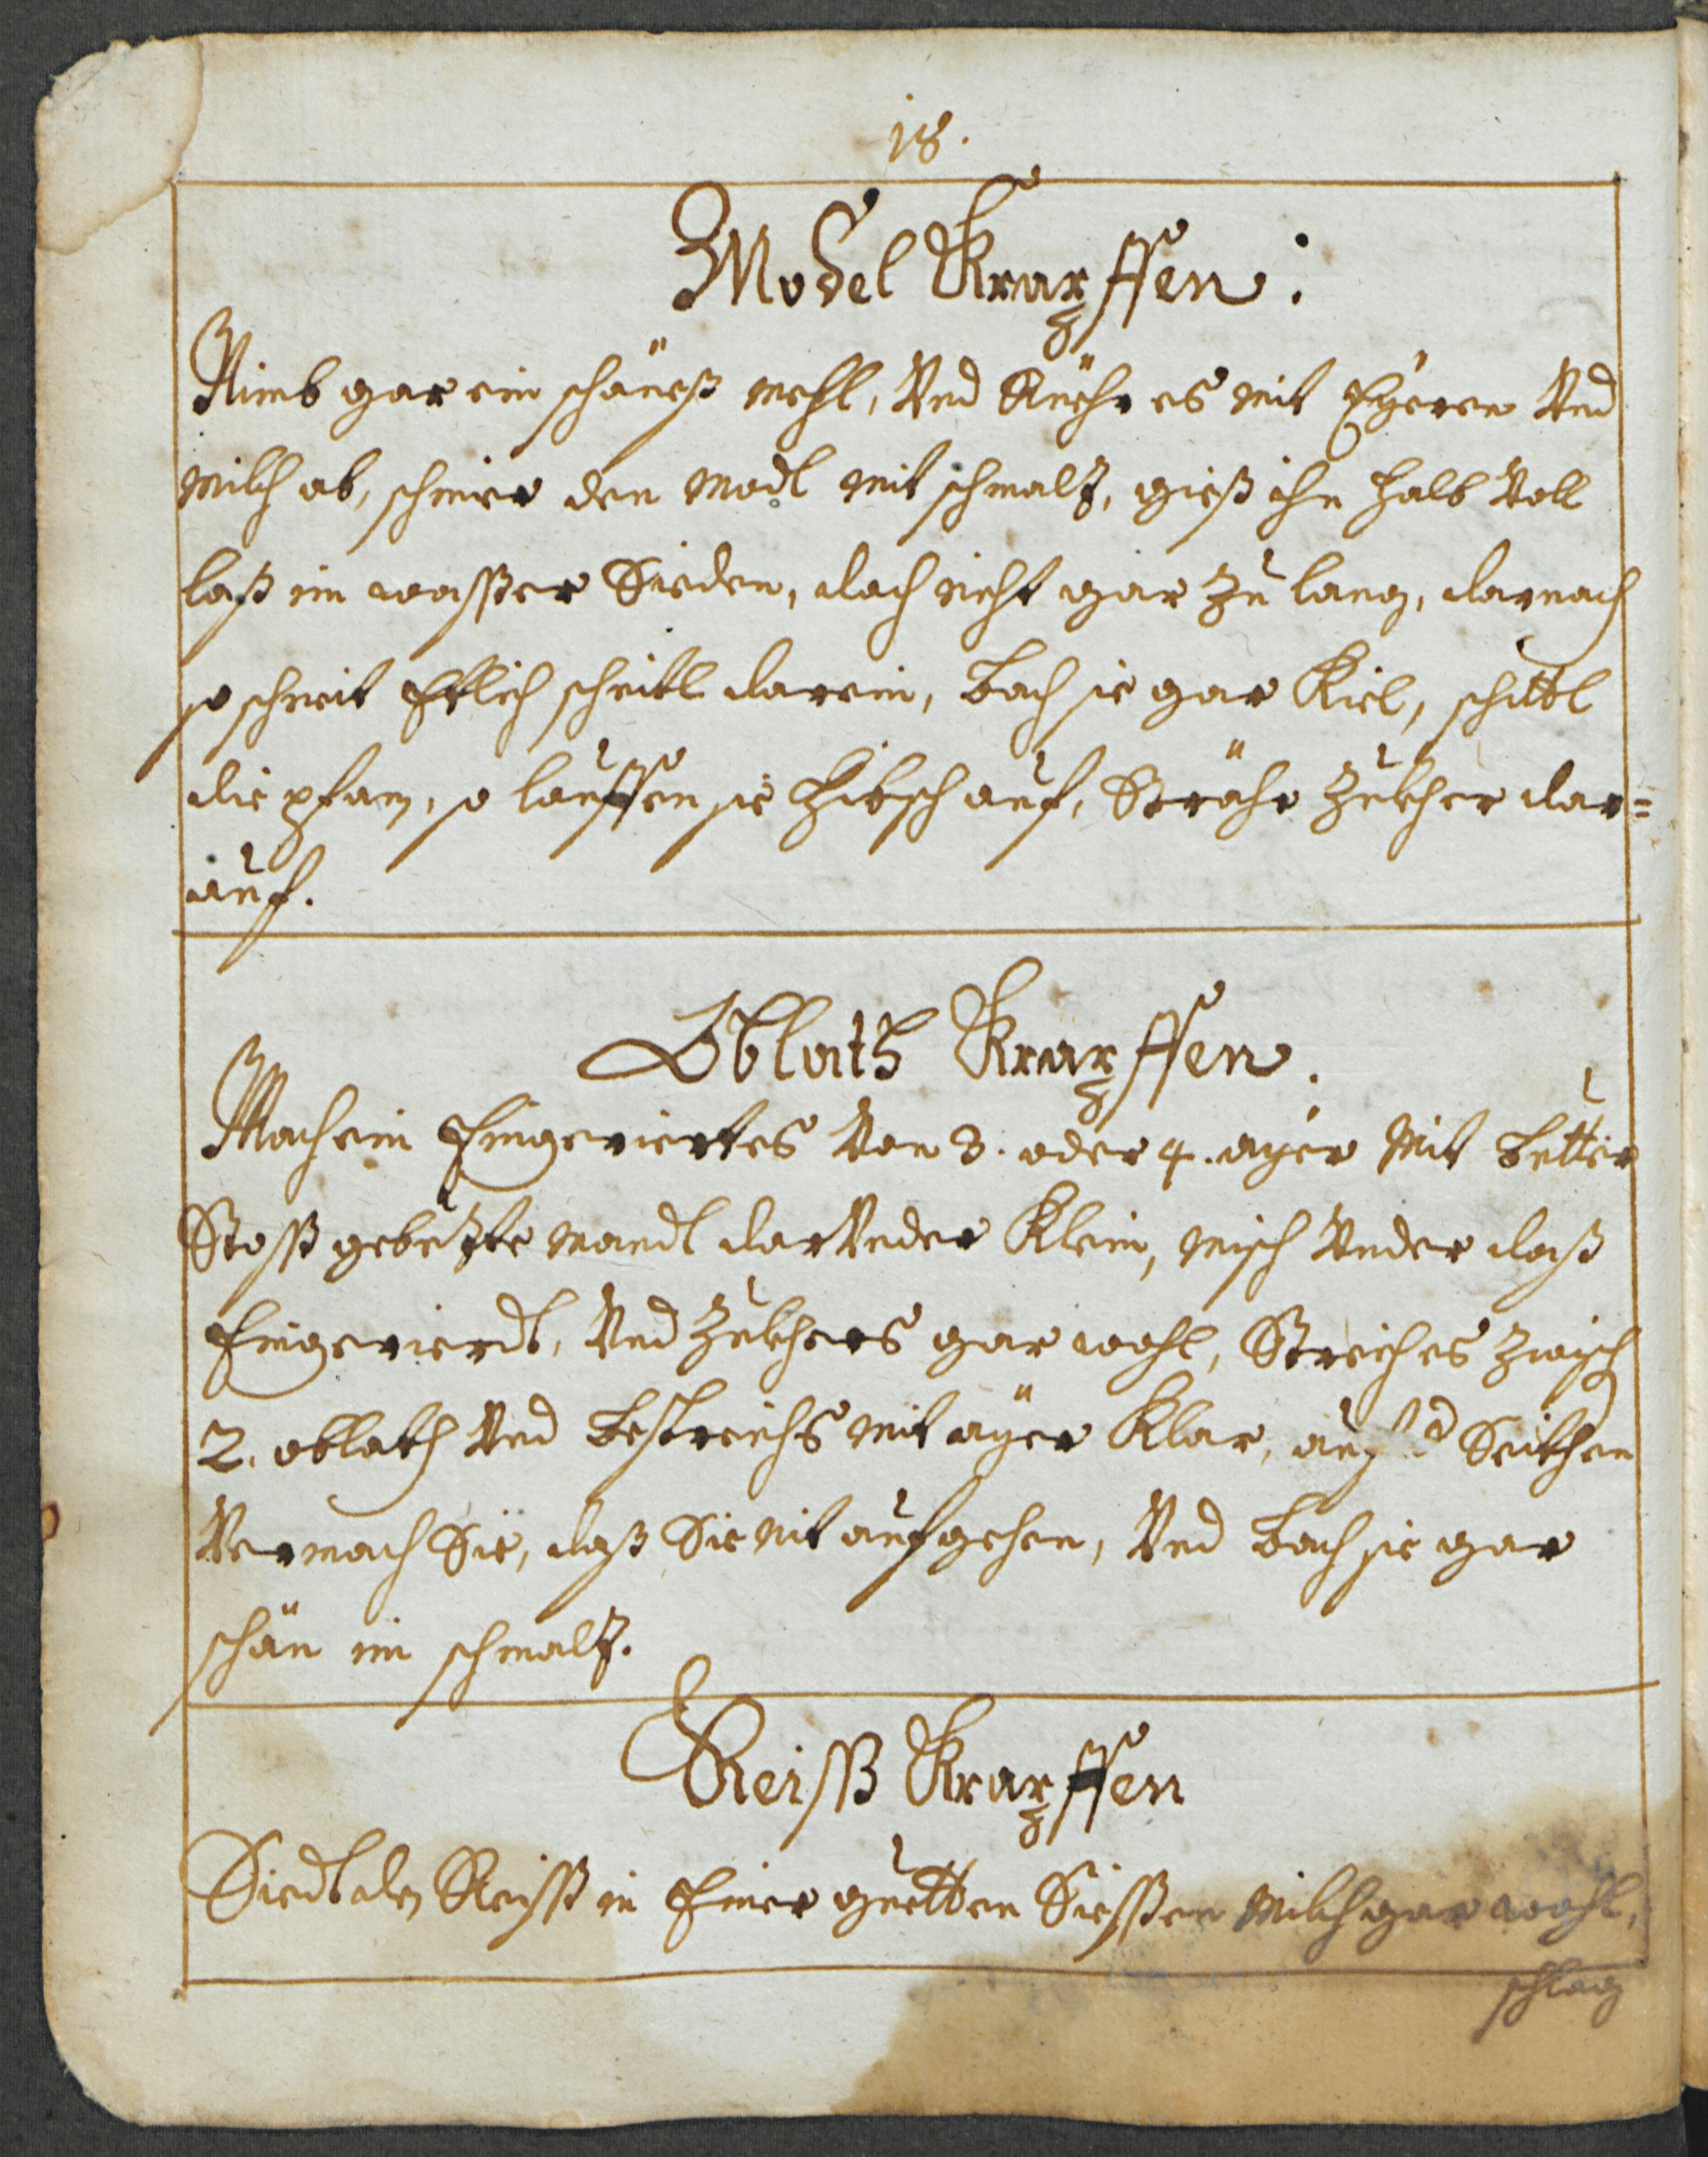 18.
Model Krapffen:
Nimb gar ein schöneß mehl, Vnd Rüehr es mit Eÿeren Vnd
milch ab, schmier den modl mit schmalz, gieß ihn halb Voll
laß im wasser Sieden, doch nicht gar zu lang, darnach
so schneit Etlich schnitl darein, Bach sie gar Kiel, schittl
die pfan, so lauffen sie hibsch auf, Strähe zukher dar=
auf.
Oblath Krapffen.
Mach ein Eingeriertes Von 3. oder 4. aÿer Mit Butter
Stoß gebuzte mandl darVnder Klein, misch Vnder daß
Eingerierdt, Vnd zukhers gar wohl, Streich es zwisch
2. oblath Vnd Bestreichs mit aÿer Klar, auf d Seithen
Vermach Sie, daß Sie nit aufgehen, Vnd Bach sie gar
schön im schmalz.
Reiß Krapffen
Siedt den Reiß in Einer guetten Siessen Milch gar wohl,
schlag